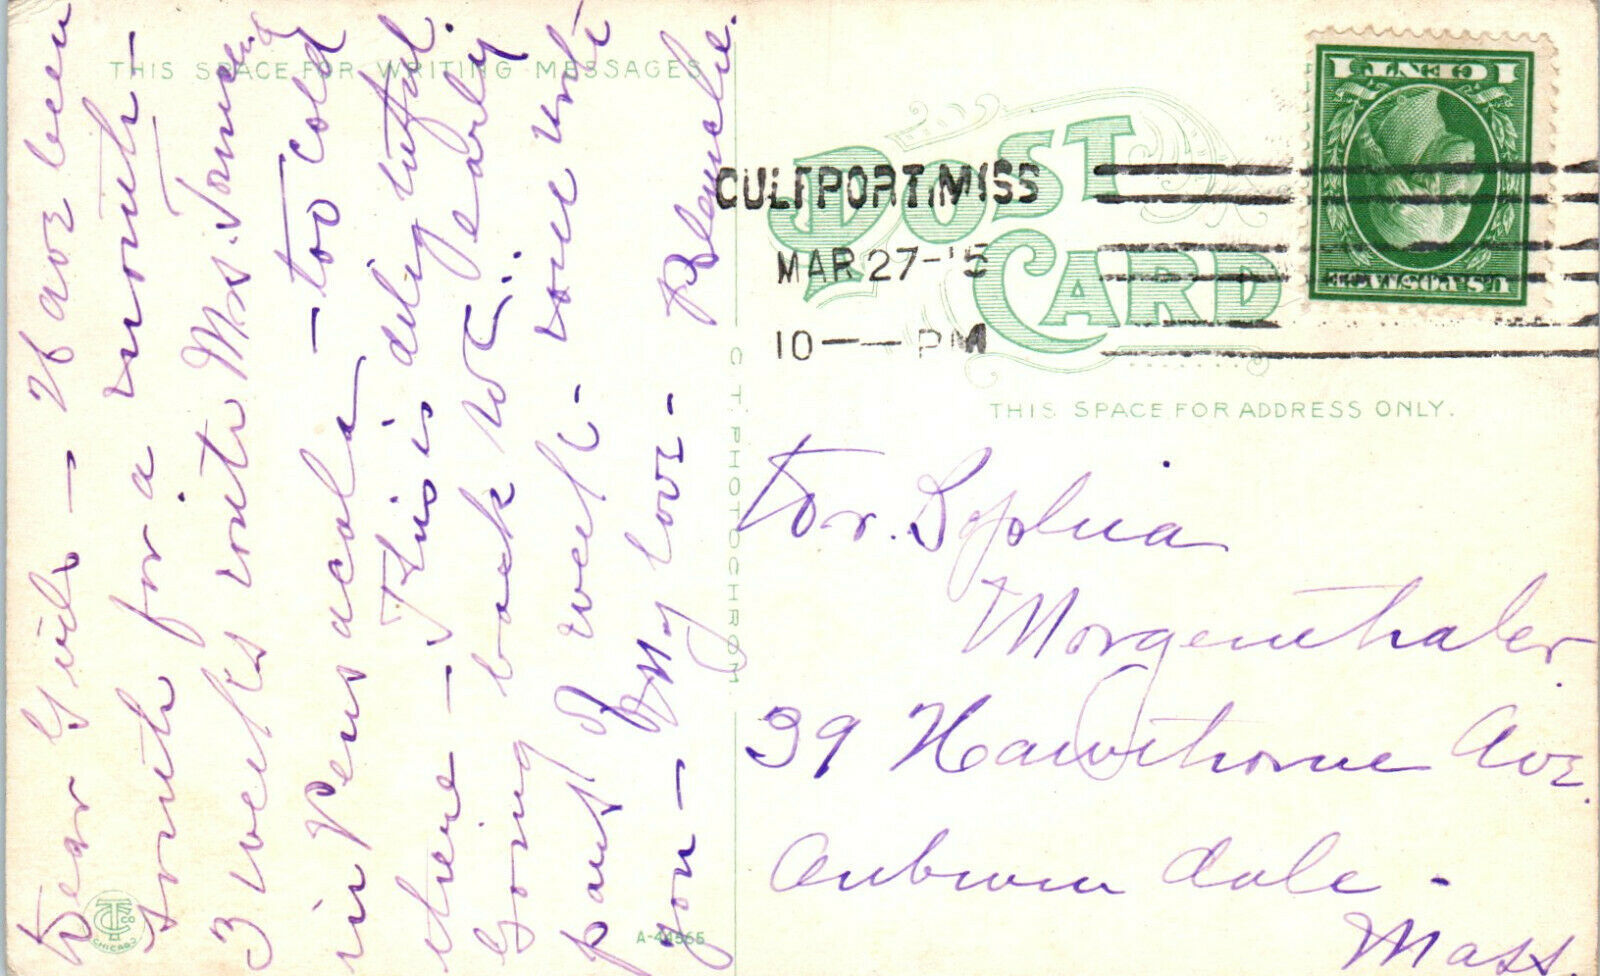 THIS SPACE FOR WRITING MESSAGES
Dear Girls - Have been
South for a month -
3 weeks with Mrs.
in Pensacola - too cold
there - This is delightful.
Going back to early
part of week - come
you - My love - Blanche.
C. T. PHOTOCHROM
A-44565
CT CO
CHICAGO
POST CARD
GULFPORT, MISS
MAR 27-15
10 — PM
U.S. POSTAGE
1 CENT 1
THIS SPACE FOR ADDRESS ONLY.
Sophia
Morgenthaler
39 Hawthorne Ave.
Auburndale -
Mass.